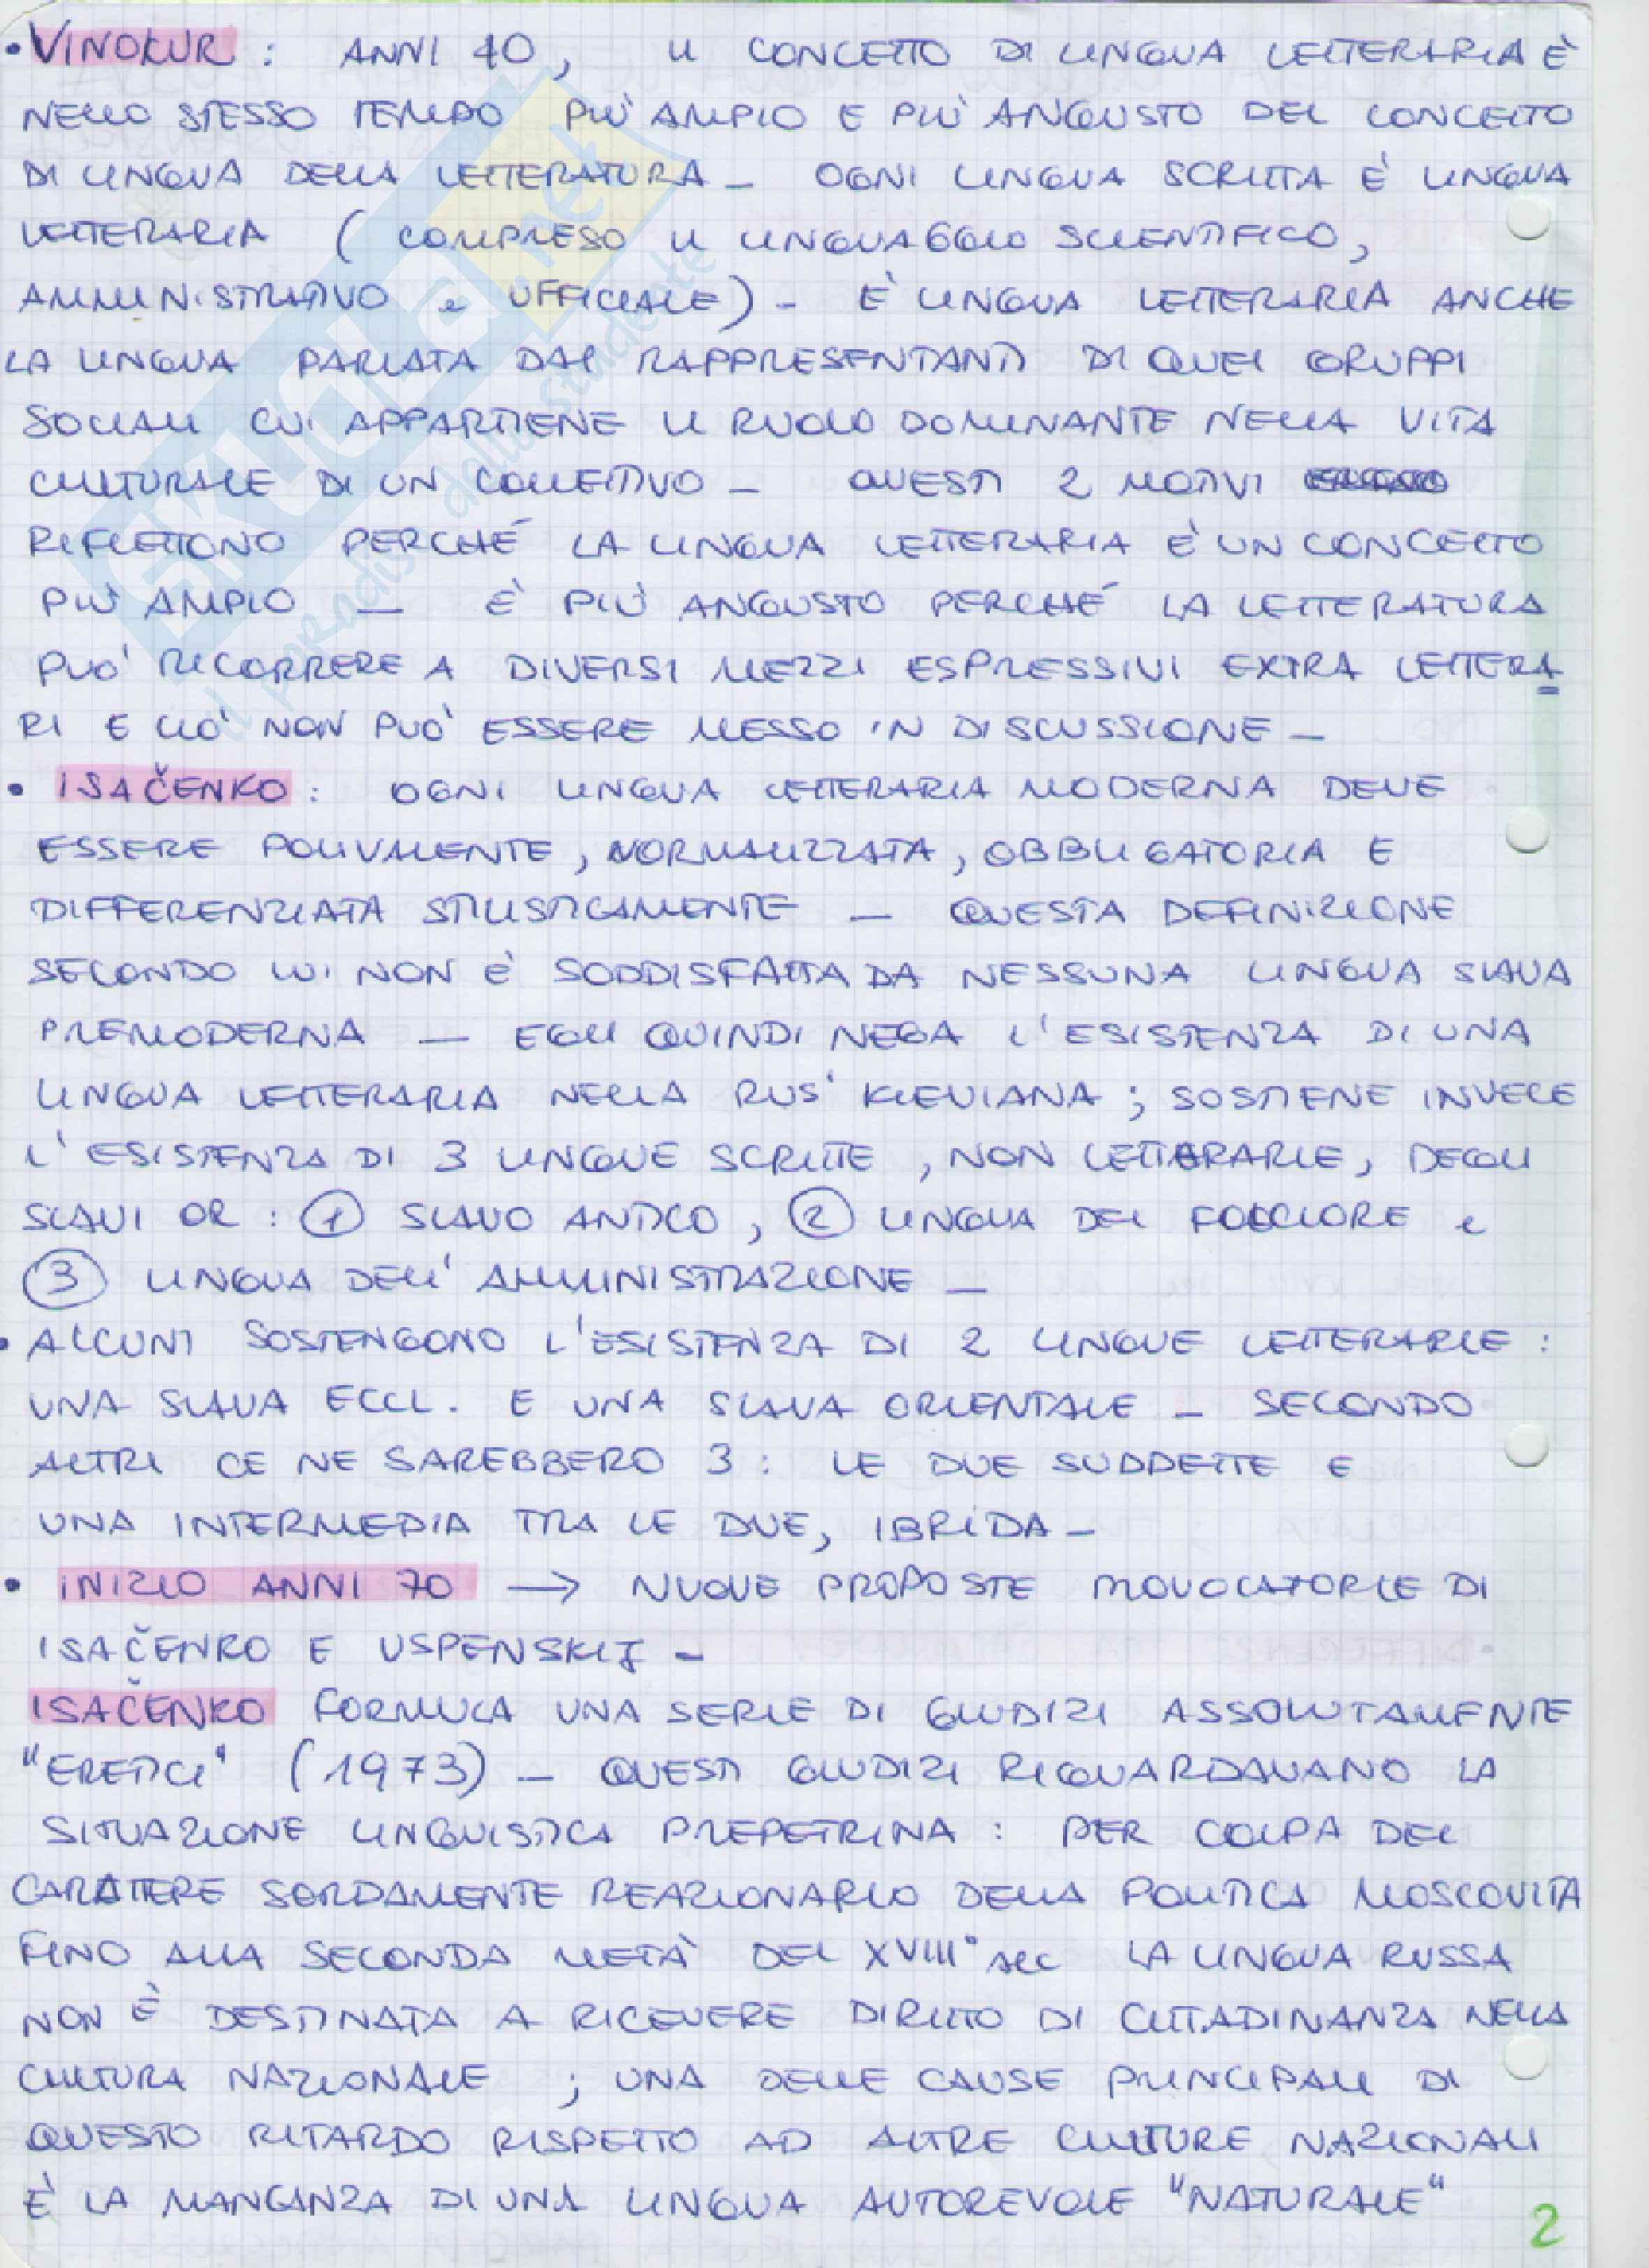 • VINOKUR : ANNI 40, IL CONCETTO DI LINGUA LETTERARIA È
NELLO STESSO TEMPO PIÙ AMPIO E PIÙ ANGUSTO DEL CONCETTO
DI LINGUA DELLA LETTERATURA – OGNI LINGUA SCRITTA È LINGUA
LETTERARIA ( COMPRESO IL LINGUAGGIO SCIENTIFICO,
AMMINISTRATIVO e UFFICIALE) – È LINGUA LETTERARIA ANCHE
LA LINGUA PARLATA DAI RAPPRESENTANTI DI QUEI GRUPPI
SOCIALI CUI APPARTIENE IL RUOLO DOMINANTE NELLA VITA
CULTURALE DI UN COLLETTIVO – QUESTI 2 MOTIVI
RIFLETTONO PERCHÉ LA LINGUA LETTERARIA È UN CONCETTO
PIÙ AMPIO – È PIÙ ANGUSTO PERCHÉ LA LETTERATURA
PUO' RICORRERE A DIVERSI MEZZI ESPRESSIVI EXTRA LETTERA
RI E CIO' NON PUO' ESSERE MESSO IN DISCUSSIONE –
• ISAČENKO : OGNI LINGUA LETTERARIA MODERNA DEVE
ESSERE POLIVALENTE, NORMALIZZATA, OBBLIGATORIA E
DIFFERENZIATA STILISTICAMENTE – QUESTA DEFINIZIONE
SECONDO LUI NON È SODDISFATTA DA NESSUNA LINGUA SLAVA
PREMODERNA – EGLI QUINDI NEGA L'ESISTENZA DI UNA
LINGUA LETTERARIA NELLA RUS' KIEVIANA ; SOSTIENE INVECE
L'ESISTENZA DI 3 LINGUE SCRITTE, NON LETTERARIE, DEGLI
SLAVI OR : ① SLAVO ANTICO, ② LINGUA DEL FOLCLORE e
③ LINGUA DELL'AMMINISTRAZIONE –
• ALCUNI SOSTENGONO L'ESISTENZA DI 2 LINGUE LETTERARIE :
UNA SLAVA ECCL. E UNA SLAVA ORIENTALE – SECONDO
ALTRI CE NE SAREBBERO 3 : LE DUE SUDDETTE E
UNA INTERMEDIA TRA LE DUE, IBRIDA –
• INIZIO ANNI 70 → NUOVE PROPOSTE PROVOCATORIE DI
ISAČENKO E USPENSKIJ –
ISAČENKO FORMULA UNA SERIE DI GIUDIZI ASSOLUTAMENTE
"ERETICI" (1973) – QUESTI GIUDIZI RIGUARDAVANO LA
SITUAZIONE LINGUISTICA PREPETRINA : PER COLPA DEL
CARATTERE SORDAMENTE REAZIONARIO DELLA POLITICA MOSCOVITA
FINO ALLA SECONDA METÀ DEL XVIII° sec LA LINGUA RUSSA
NON È DESTINATA A RICEVERE DIRITTO DI CITTADINANZA NELLA
CULTURA NAZIONALE ; UNA DELLE CAUSE PRINCIPALI DI
QUESTO RITARDO RISPETTO AD ALTRE CULTURE NAZIONALI
È LA MANCANZA DI UNA LINGUA AUTOREVOLE "NATURALE"
2
SKUOLA.net
il paradiso dello studente